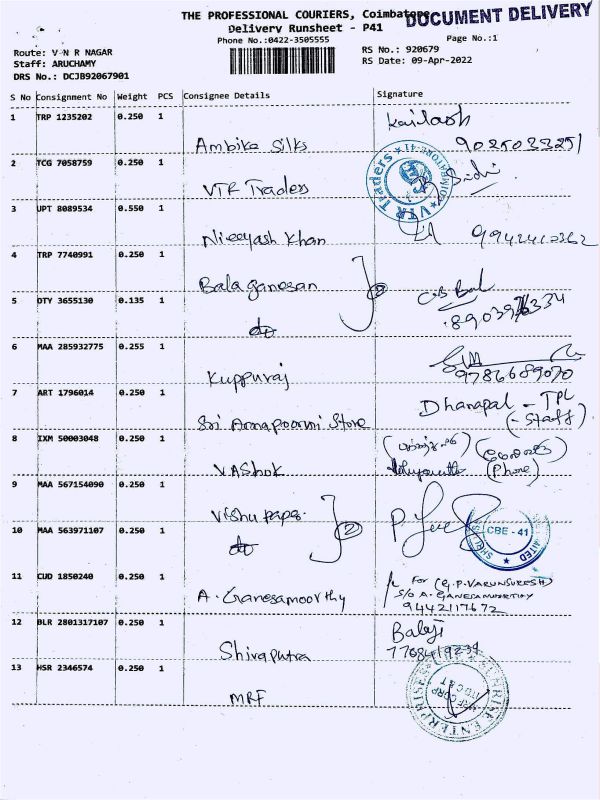 THE PROFESSIONAL COURIERS, Coimbatore
DOCUMENT DELIVERY
Delivery Runsheet - P41
Phone No.:0422-3505555
Page No.:1
Route: V N R NAGAR
RS No.: 920679
Staff: ARUCHAMY
RS Date: 09-Apr-2022
DRS No.: DCJB92067901
S No Consignment No Weight PCS Consignee Details Signature
1 TRP 1235202 0.250 1 Kailash
Ambika Silks
2 TCG 7058759 0.250 1
VTR Traders
VTR Traders
3 UPT 8089534 0.550 1
Khan 9942410362
4 TRP 7740991 0.250 1
Bala ganesan
5 DTY 3655130 0.135 1
do
6 MAA 285932775 0.255 1
Kuppuraj 9786689070
7 ART 1796014 0.250 1 Dhanapal - TPL
Sri Annapoorni Store (- Staff)
8 IXM 50003048 0.250 1
VAshok (Phone)
9 MAA 567154090 0.250 1
Vishu papa.
2
10 MAA 563971107 0.250 1 CBE - 41
do
11 CUD 1850240 0.250 1 For (G.P. VARUNSURESH)
A. Ganesamoorthy S/o A. GANESAMOORTHY
9442117672
12 BLR 2801317107 0.250 1 Balaji
Shivaputra 7708419234
13 HSR 2346574 0.250 1
MRF